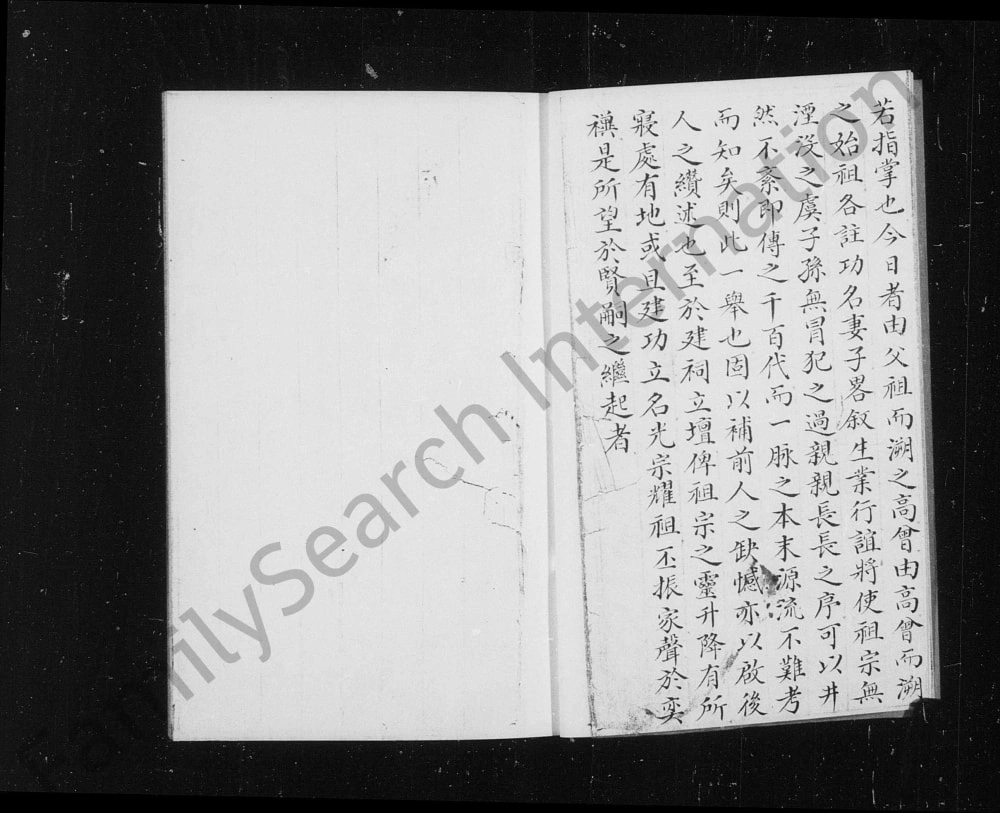 若指掌也今日者由父祖而溯之高曾由高曾而溯
之始祖各註功名妻子畧叙生業行誼將使祖宗無
湮没之虞子孫無冒犯之過親親長長之序可以井
然不紊即傳之千百代而一脉之本末源流不難考
而知矣則此一舉也固以補前人之缺憾亦以啟後
人之纘述也至於建祠立壇俾祖宗之靈升降有所
寢處有地或且建功立名光宗耀祖丕振家聲於奕
禩是所望於賢嗣之繼起者
FamilySearch International